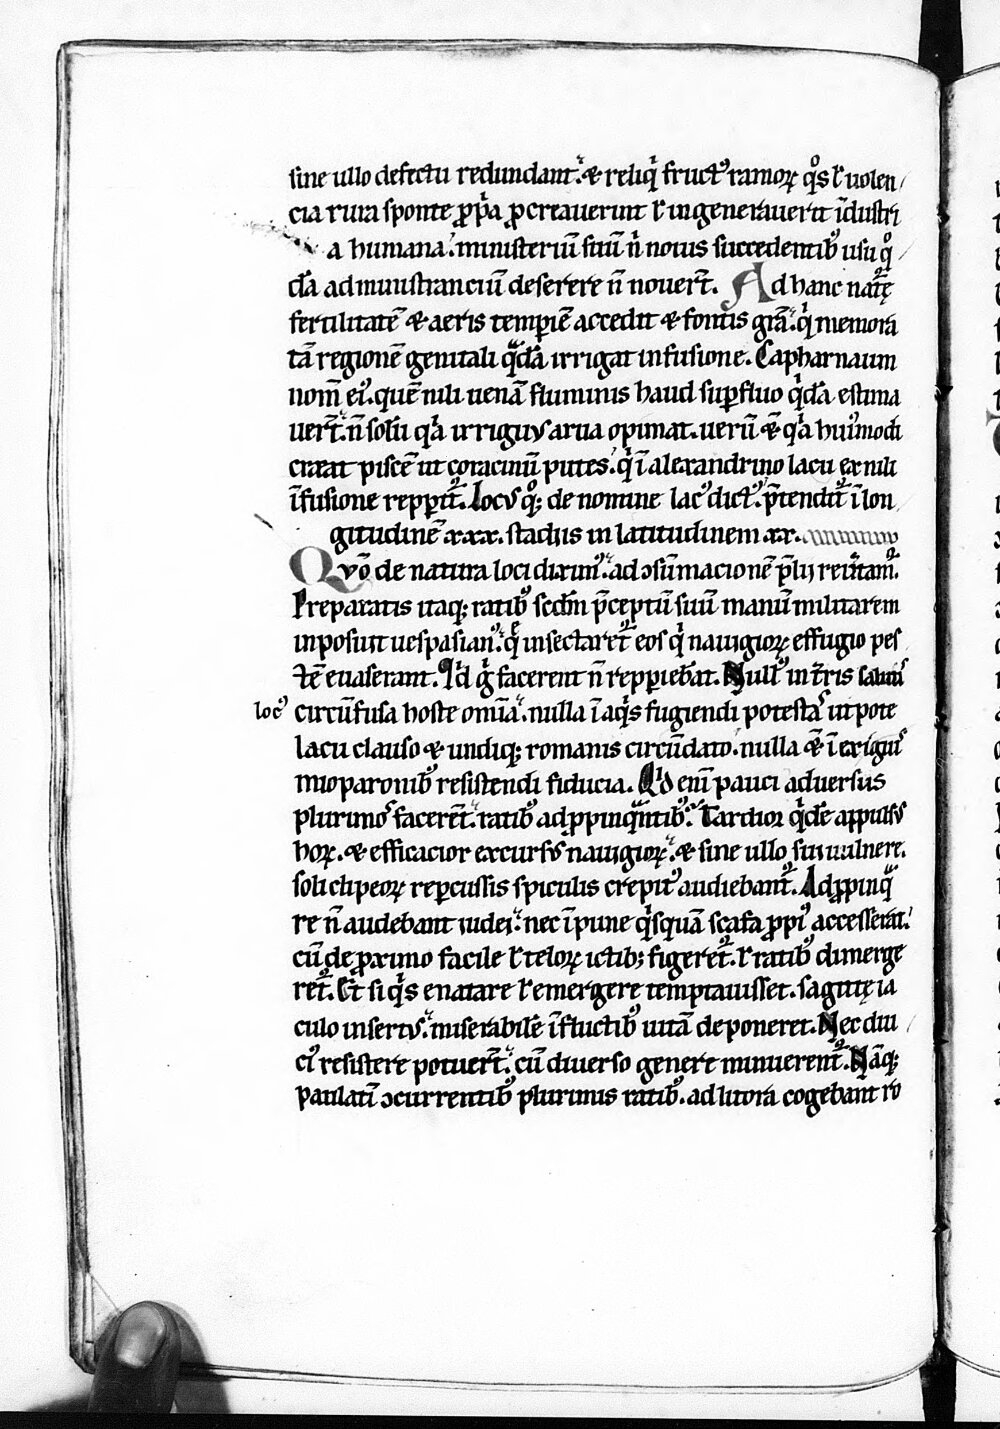 sine ullo defectu redundant. ⁊ reliq̇ fruct᷒ ramoꝝ qͦs ł uolen
cia rura sponte ꝓpⁱa ꝓcreauerint ł ingenerauerit īdustri
a humana. ministeriū suū ñ nouis succedentib᷒ usu qͦ
dā administranciū deserere ñ nouert̄. Ad hanc nat̄ę
fertilitatē ⁊ aeris temꝑiē accedit ⁊ fontis grā. q̇ memora
tā regionē genitali qᵃdā irrigat infusione. Capharnaum
nom̄ ei᷒. quē nili uenā fluminis haud suꝑfluo qⁱdā estima
uert̄. ñ solū qⁱa irriguus arua opimat. uerū ⁊ qⁱa hui᷒modi
creat piscē ut coracinū putes. qⁱ ī alexandrino lacu ex nili
īfusione reꝑit̄. Locus qͦꝫ de nomine lac᷒ dict᷒. p̄tendit̄ ī lon
gitudinē xxx. stadiis in latitudinem xx.
Qūo de natura loci dixim᷒. ad ɔsūmacionē p̄lii reu̇tam̄.
Preparatis itaqꝫ ratib᷒ scđm p̄ceptū suū manū militarem
inposuit uespasian᷒. qͤ insectaret̄ eos qⁱ nauigioꝝ effugio pes
tē euaserant. Id g̊ facerent ñ reꝑiebat. Null᷒ in t̄ris
loc᷒ circūfusa hoste omīa. nulla ī aqⁱs fugiendi potestas ut pote
lacu clauso ⁊ undiqꝫ romanis circūdato. nulla ⁊ ī exigui᷒
mioparonib᷒ resistendi fiducia. Qⁱd enī pauci aduersus
plurimos facerēt. ratib᷒ adꝓpinqᵃntib᷒. Tardior qⁱdē appuls᷒
hoꝝ. ⁊ efficacior excurs᷒ nauigioꝝ. ⁊ sine ullo sui uulnere.
soli clipeoꝝ reꝑcussis spiculis crepit᷒ audiebant̄. Adꝓpinqᵃ
re ñ audebant iudei. nec īpune qⁱsquā scafa ꝓpi᷒ accesserat.
cū de ꝓximo facile ł teloꝝ ictibꝫ figeret̄. ł ratib᷒ dimerge
ret̄. Et si qⁱs enatare ł emergere temptauisset. sagitę ia
culo insertus. miserabilē ī fluctib᷒ uitā deponeret. Nec diu
ci᷒ resistere potuert̄. cū diuerso genere minuerent̄. Nāqꝫ
paulatī ɔcurrentib᷒ plurimis ratib᷒. ad litora cogebant ro